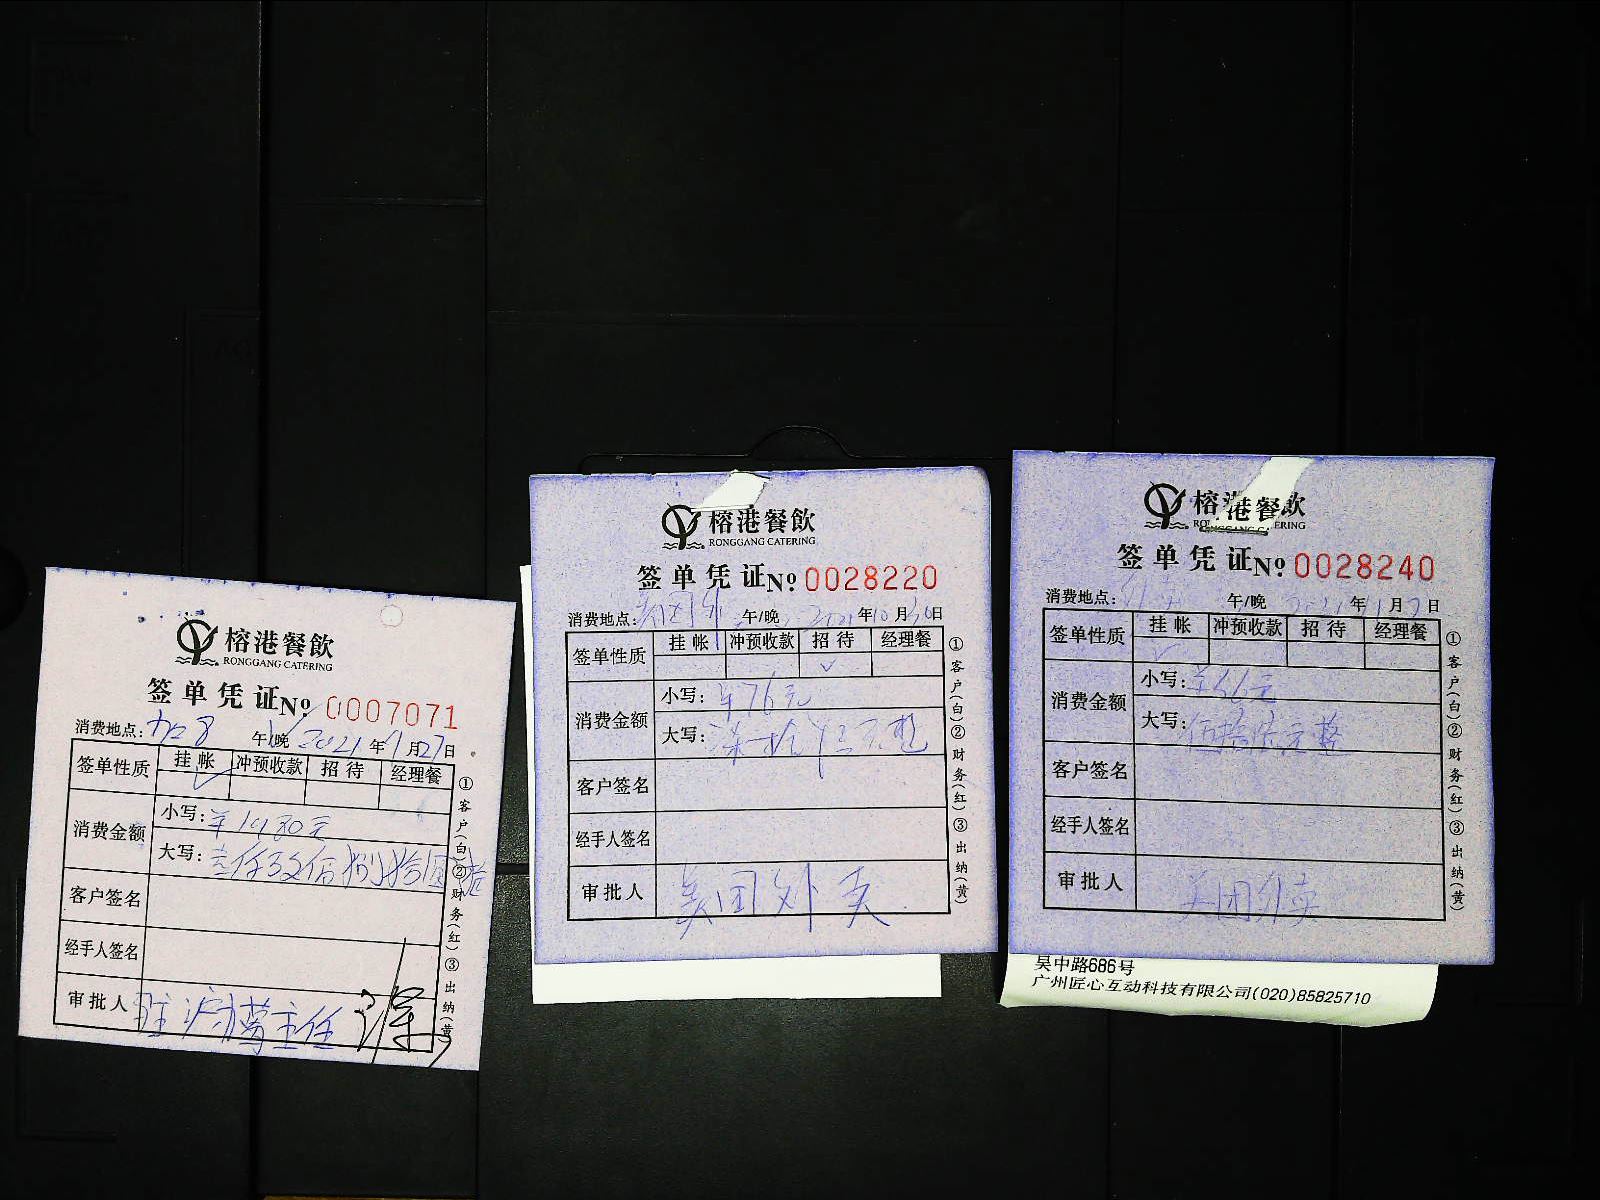 榕港餐飲
RONGGANG CATERING
签单凭证No 0007071
消费地点: 午/晚 2021年1月27日
签单性质 挂帐 冲预收款 招待 经理餐
消费金额
小写:
大写:
客户签名
经手人签名
审批人 驻沪 主任
①客户(白)②财务(红)③出纳(黄)
榕港餐飲
RONGGANG CATERING
签单凭证No 0028220
消费地点: 午/晚 2021年10月30日
签单性质 挂帐 冲预收款 招待 经理餐
消费金额
小写: ¥76元
大写: 柒拾 元整
客户签名
经手人签名
审批人 美团外卖
①客户(白)②财务(红)③出纳(黄)
榕港餐飲
签单凭证No 0028240
消费地点: 外卖 午/晚 2021年1月7日
签单性质 挂帐 冲预收款 招待 经理餐
消费金额
小写:
大写: 元整
客户签名
经手人签名
审批人 美团外卖
①客户(白)②财务(红)③出纳(黄)
吴中路686号
广州匠心互动科技有限公司(020)85825710